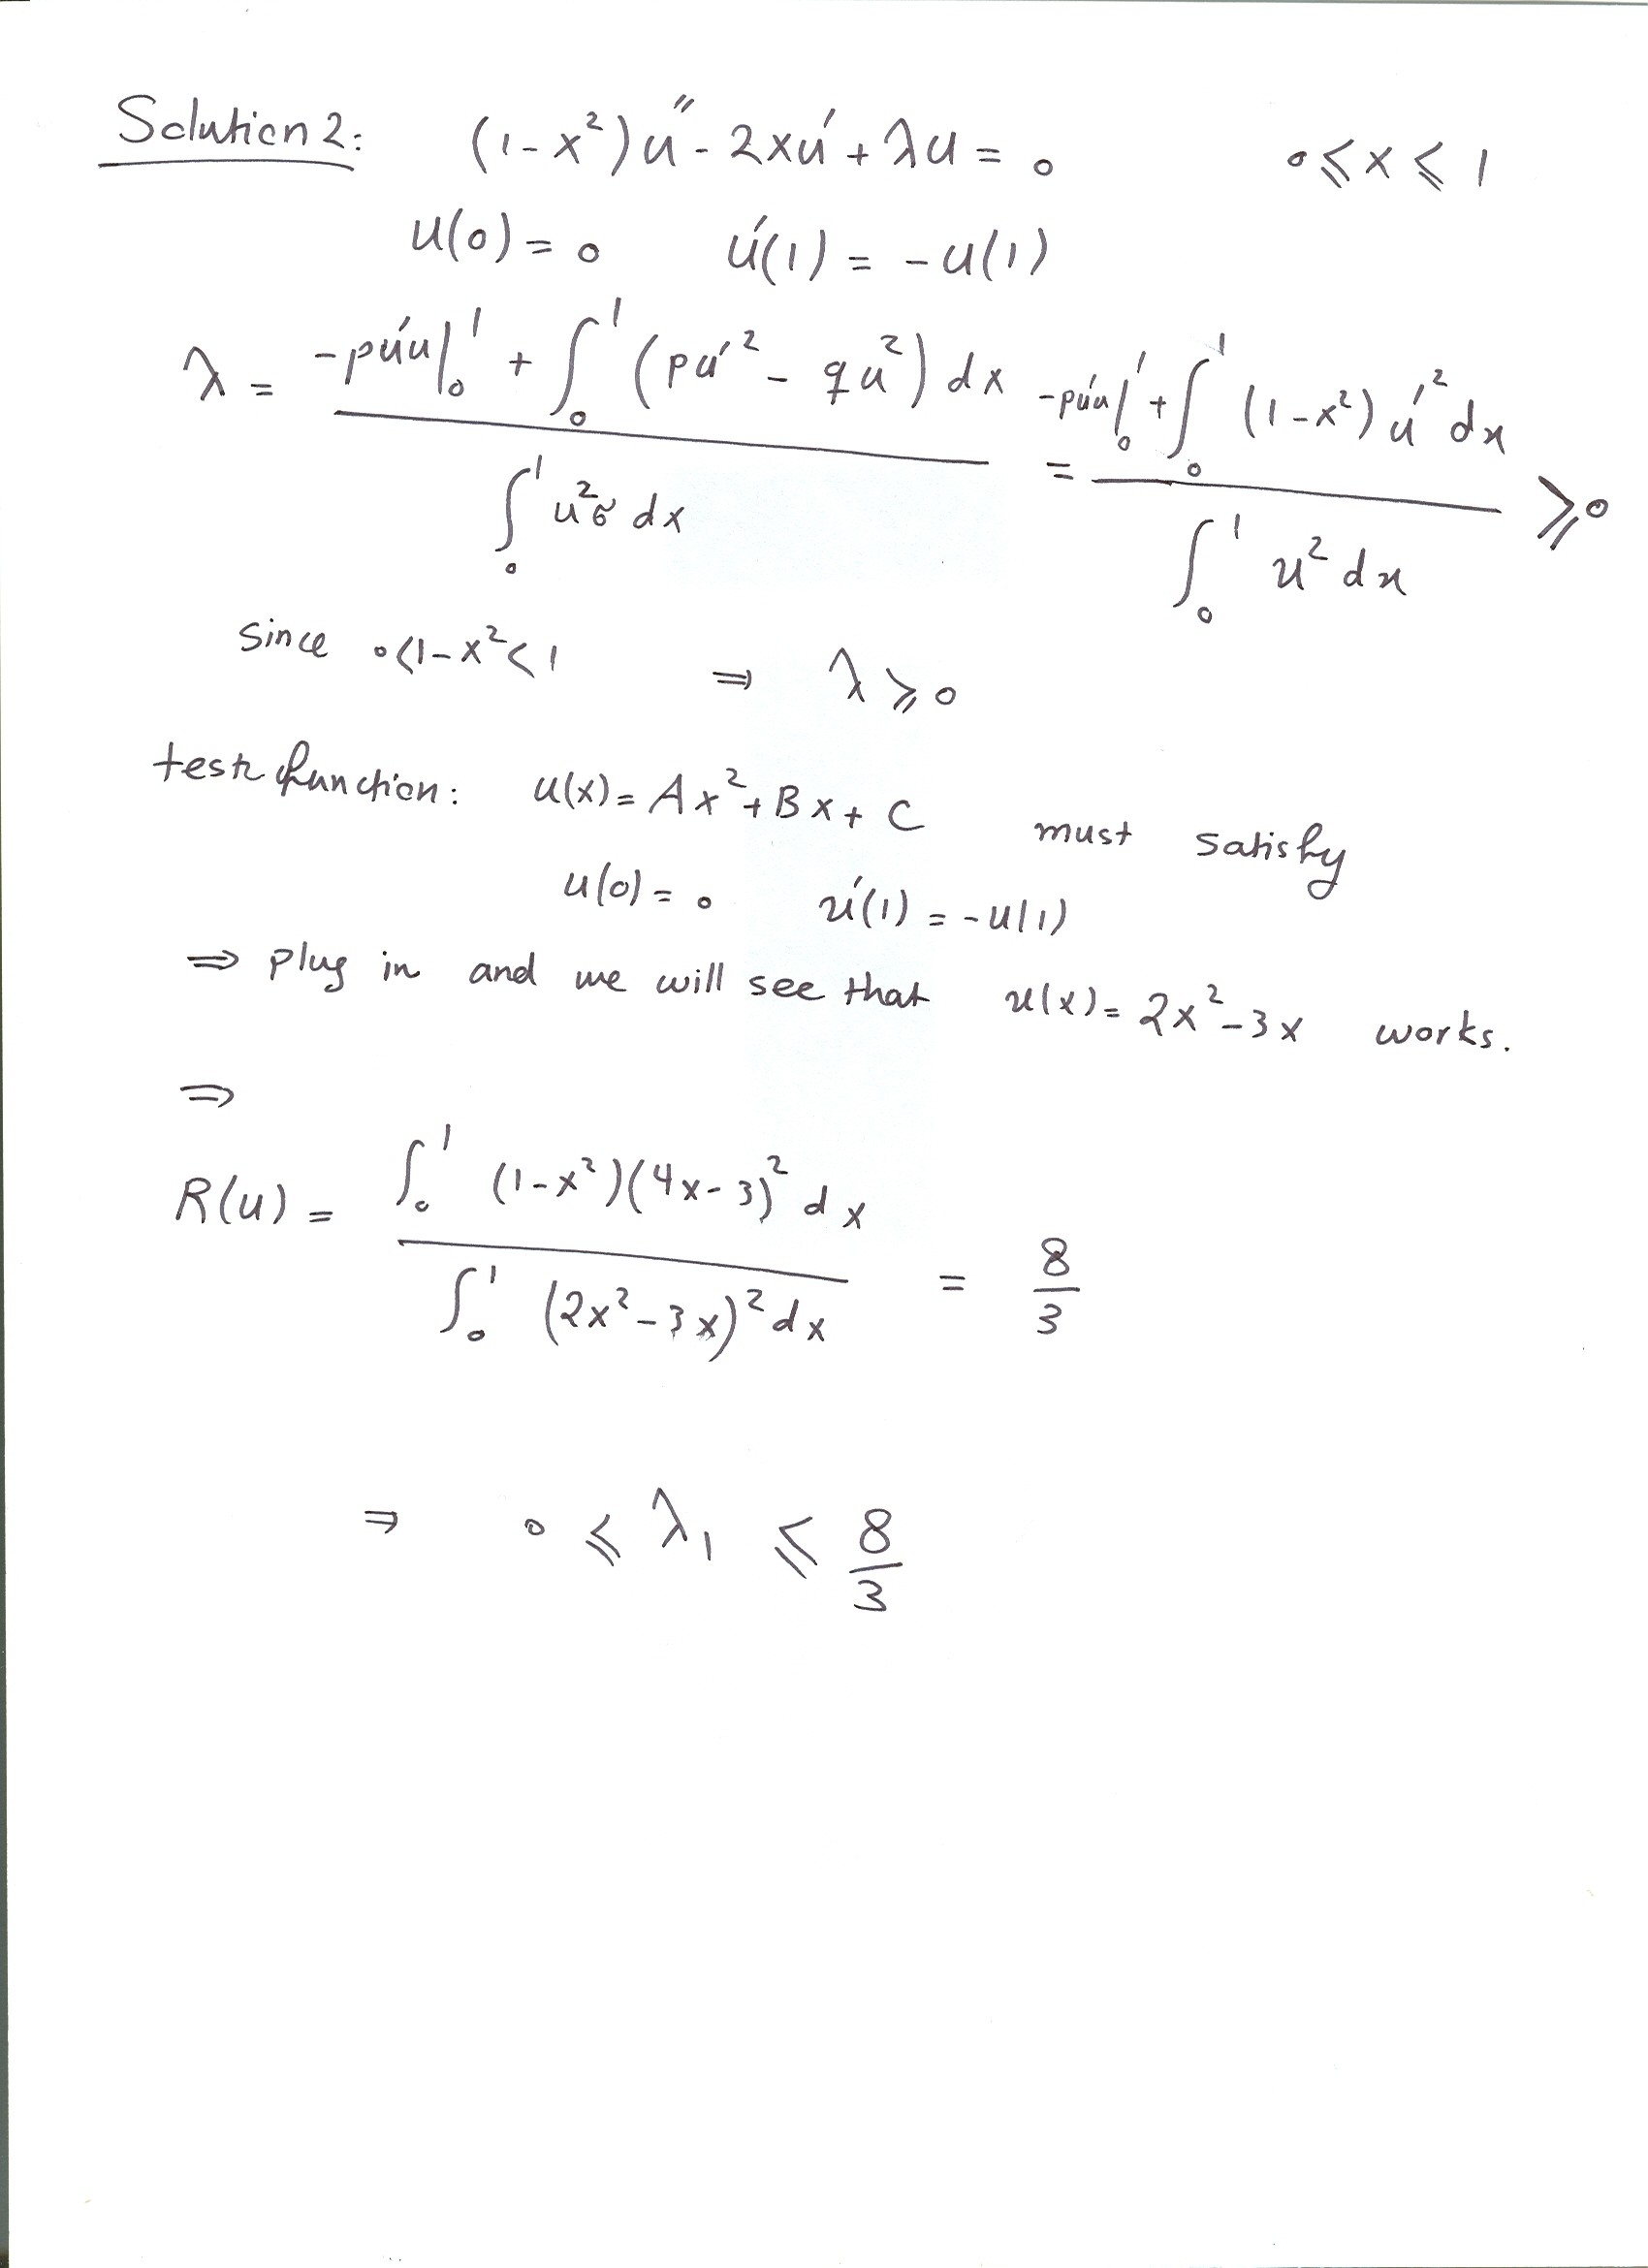 Solution 2: (1-x²)u'' - 2xu' + λu = 0 0 ≤ x ≤ 1
u(0) = 0 u'(1) = -u(1)
λ = (-pu'u|₀¹ + ∫₀¹ (pu'² - qu²) dx) / (∫₀¹ u²σ dx) = (-pu'u|₀¹ + ∫₀¹ (1-x²) u'² dx) / (∫₀¹ u² dx) ≥ 0
Since 0<1-x²<1 ⇒ λ ≥ 0
test function: u(x) = Ax² + Bx + C must satisfy
u(0) = 0 u'(1) = -u(1)
⇒ plug in and we will see that u(x) = 2x² - 3x works.
⇒
R(u) = (∫₀¹ (1-x²)(4x-3)² dx) / (∫₀¹ (2x²-3x)² dx) = 8/3
⇒ 0 ≤ λ₁ ≤ 8/3